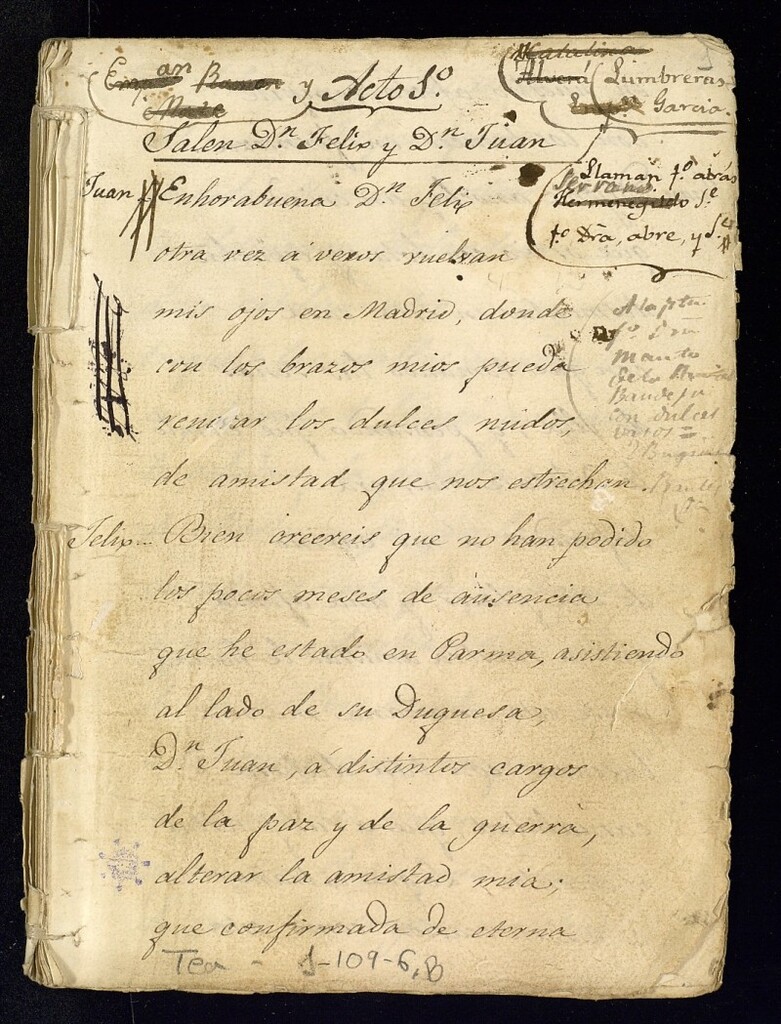 y Acto 1.º
Lumbreras
Garcia.
Salen D.n Felix y D.n Juan
Llaman 1.º atrás
Serrano
Hermenegildo
abre, y
Juan Enhorabuena D.n Felix
otra vez á veros vuelvan
mis ojos en Madrid, donde
con los brazos mios pueda
renovar los dulces nudos,
de amistad que nos estrechan.
manto
con dulces
Felix Bien creereis que no han podido
los pocos meses de ausencia
que he estado en Parma, asistiendo
al lado de su Duquesa,
D.n Juan, á distintos cargos
de la paz y de la guerra,
alterar la amistad mia;
que confirmada de eterna
Tea - 1-109-6, B